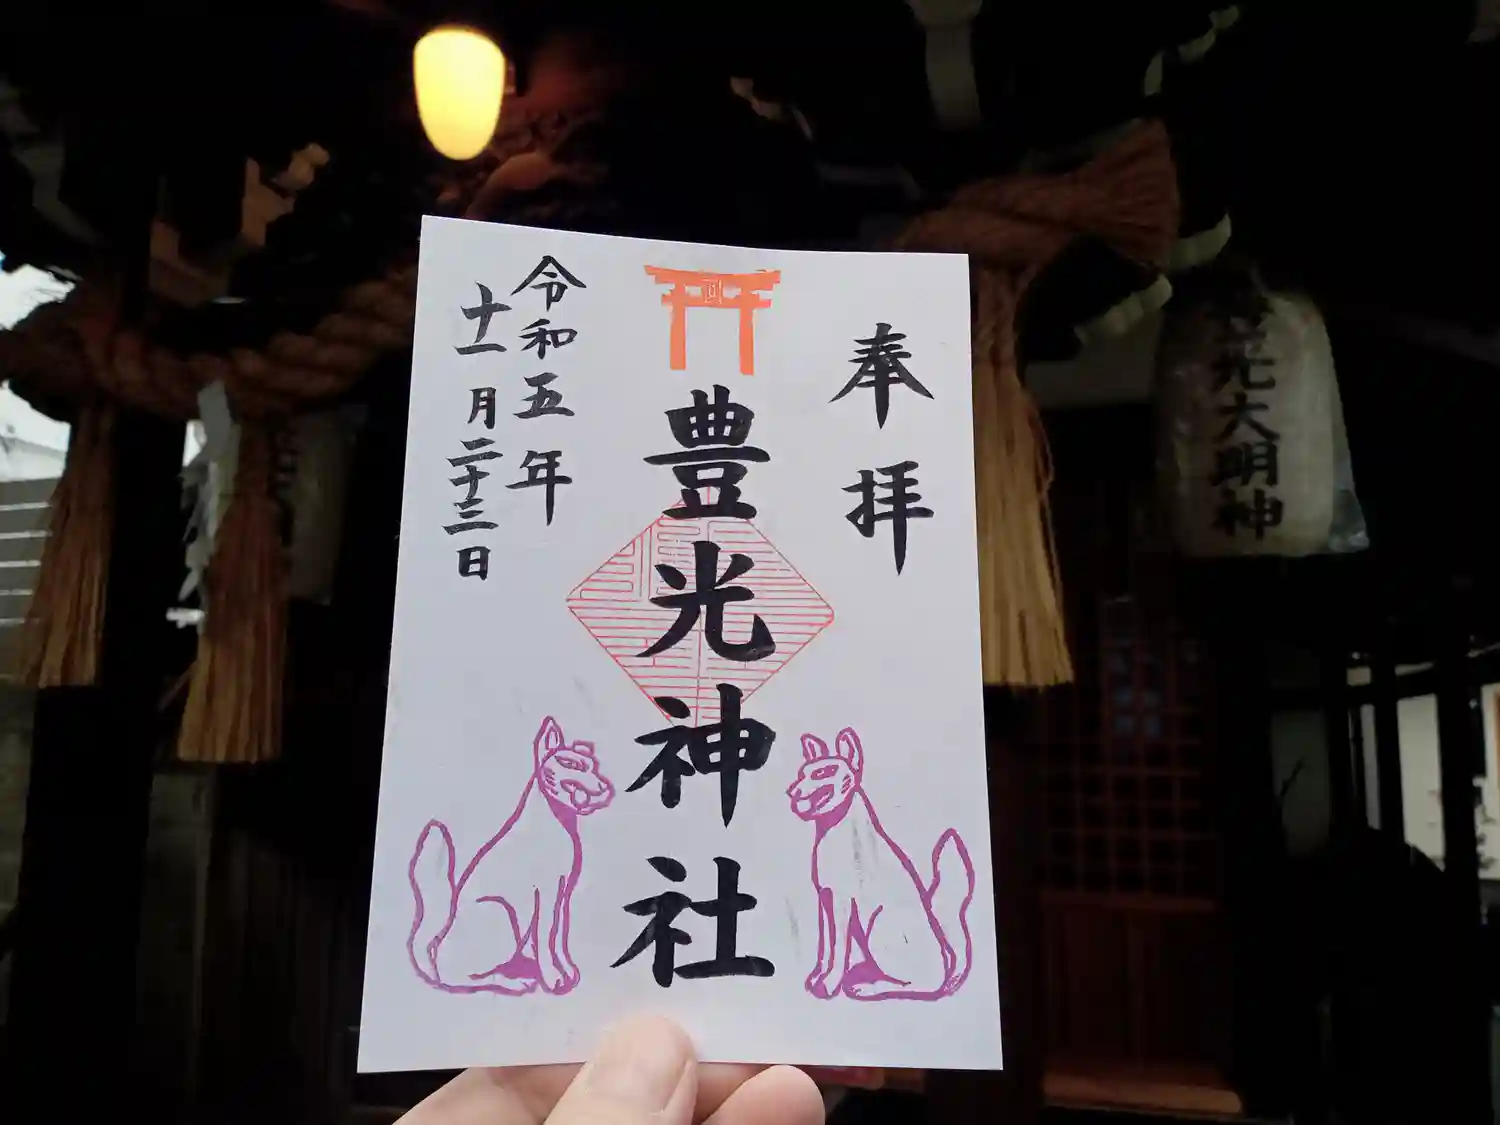 奉拝
豊光神社
令和五年
十一月二十三日
光大明神